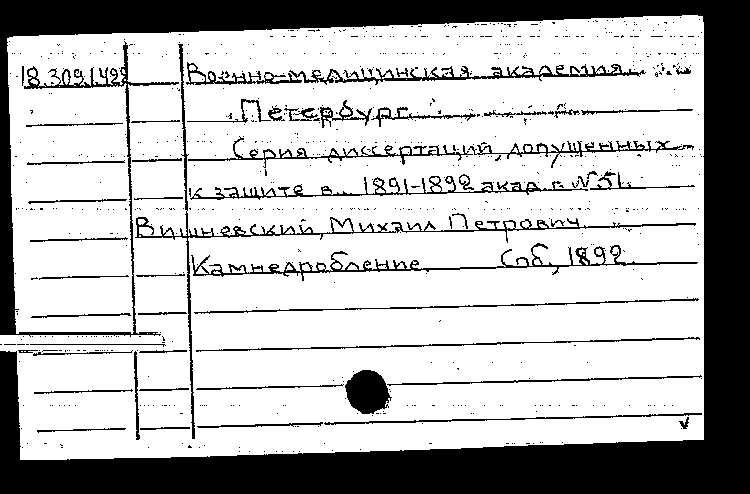 18.309.1.492 Военно-медицинская академия.
Петербург.
Серия диссертаций, допущенных
к защите в 1891-1892 акад. г. N 51.
Вишневский, Михаил Петрович.
Камнедробление. Спб, 1892.